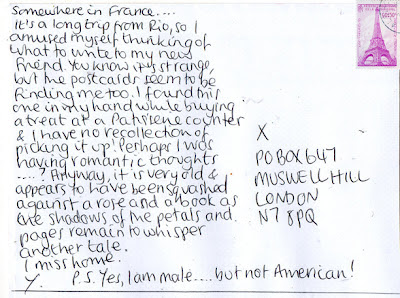 Somewhere in France....
It's a long trip from Rio, so I
amused myself thinking of
what to write to my new
friend. You know it's strange,
but the postcards seem to be
finding me too. I found this
one in my hand while buying
a treat at a Patisserie counter
& I have no recollection of
picking it up! Perhaps I was
having romantic thoughts
....? Anyway, it is very old &
appears to have been squashed
against a rose and a book as
the shadows of the petals and
pages remain to whisper
another tale.
I miss home.
Y. P.S. Yes, I am male.... but not American!
X
PO BOX 647
MUSWELL HILL
LONDON
N7 8PQ